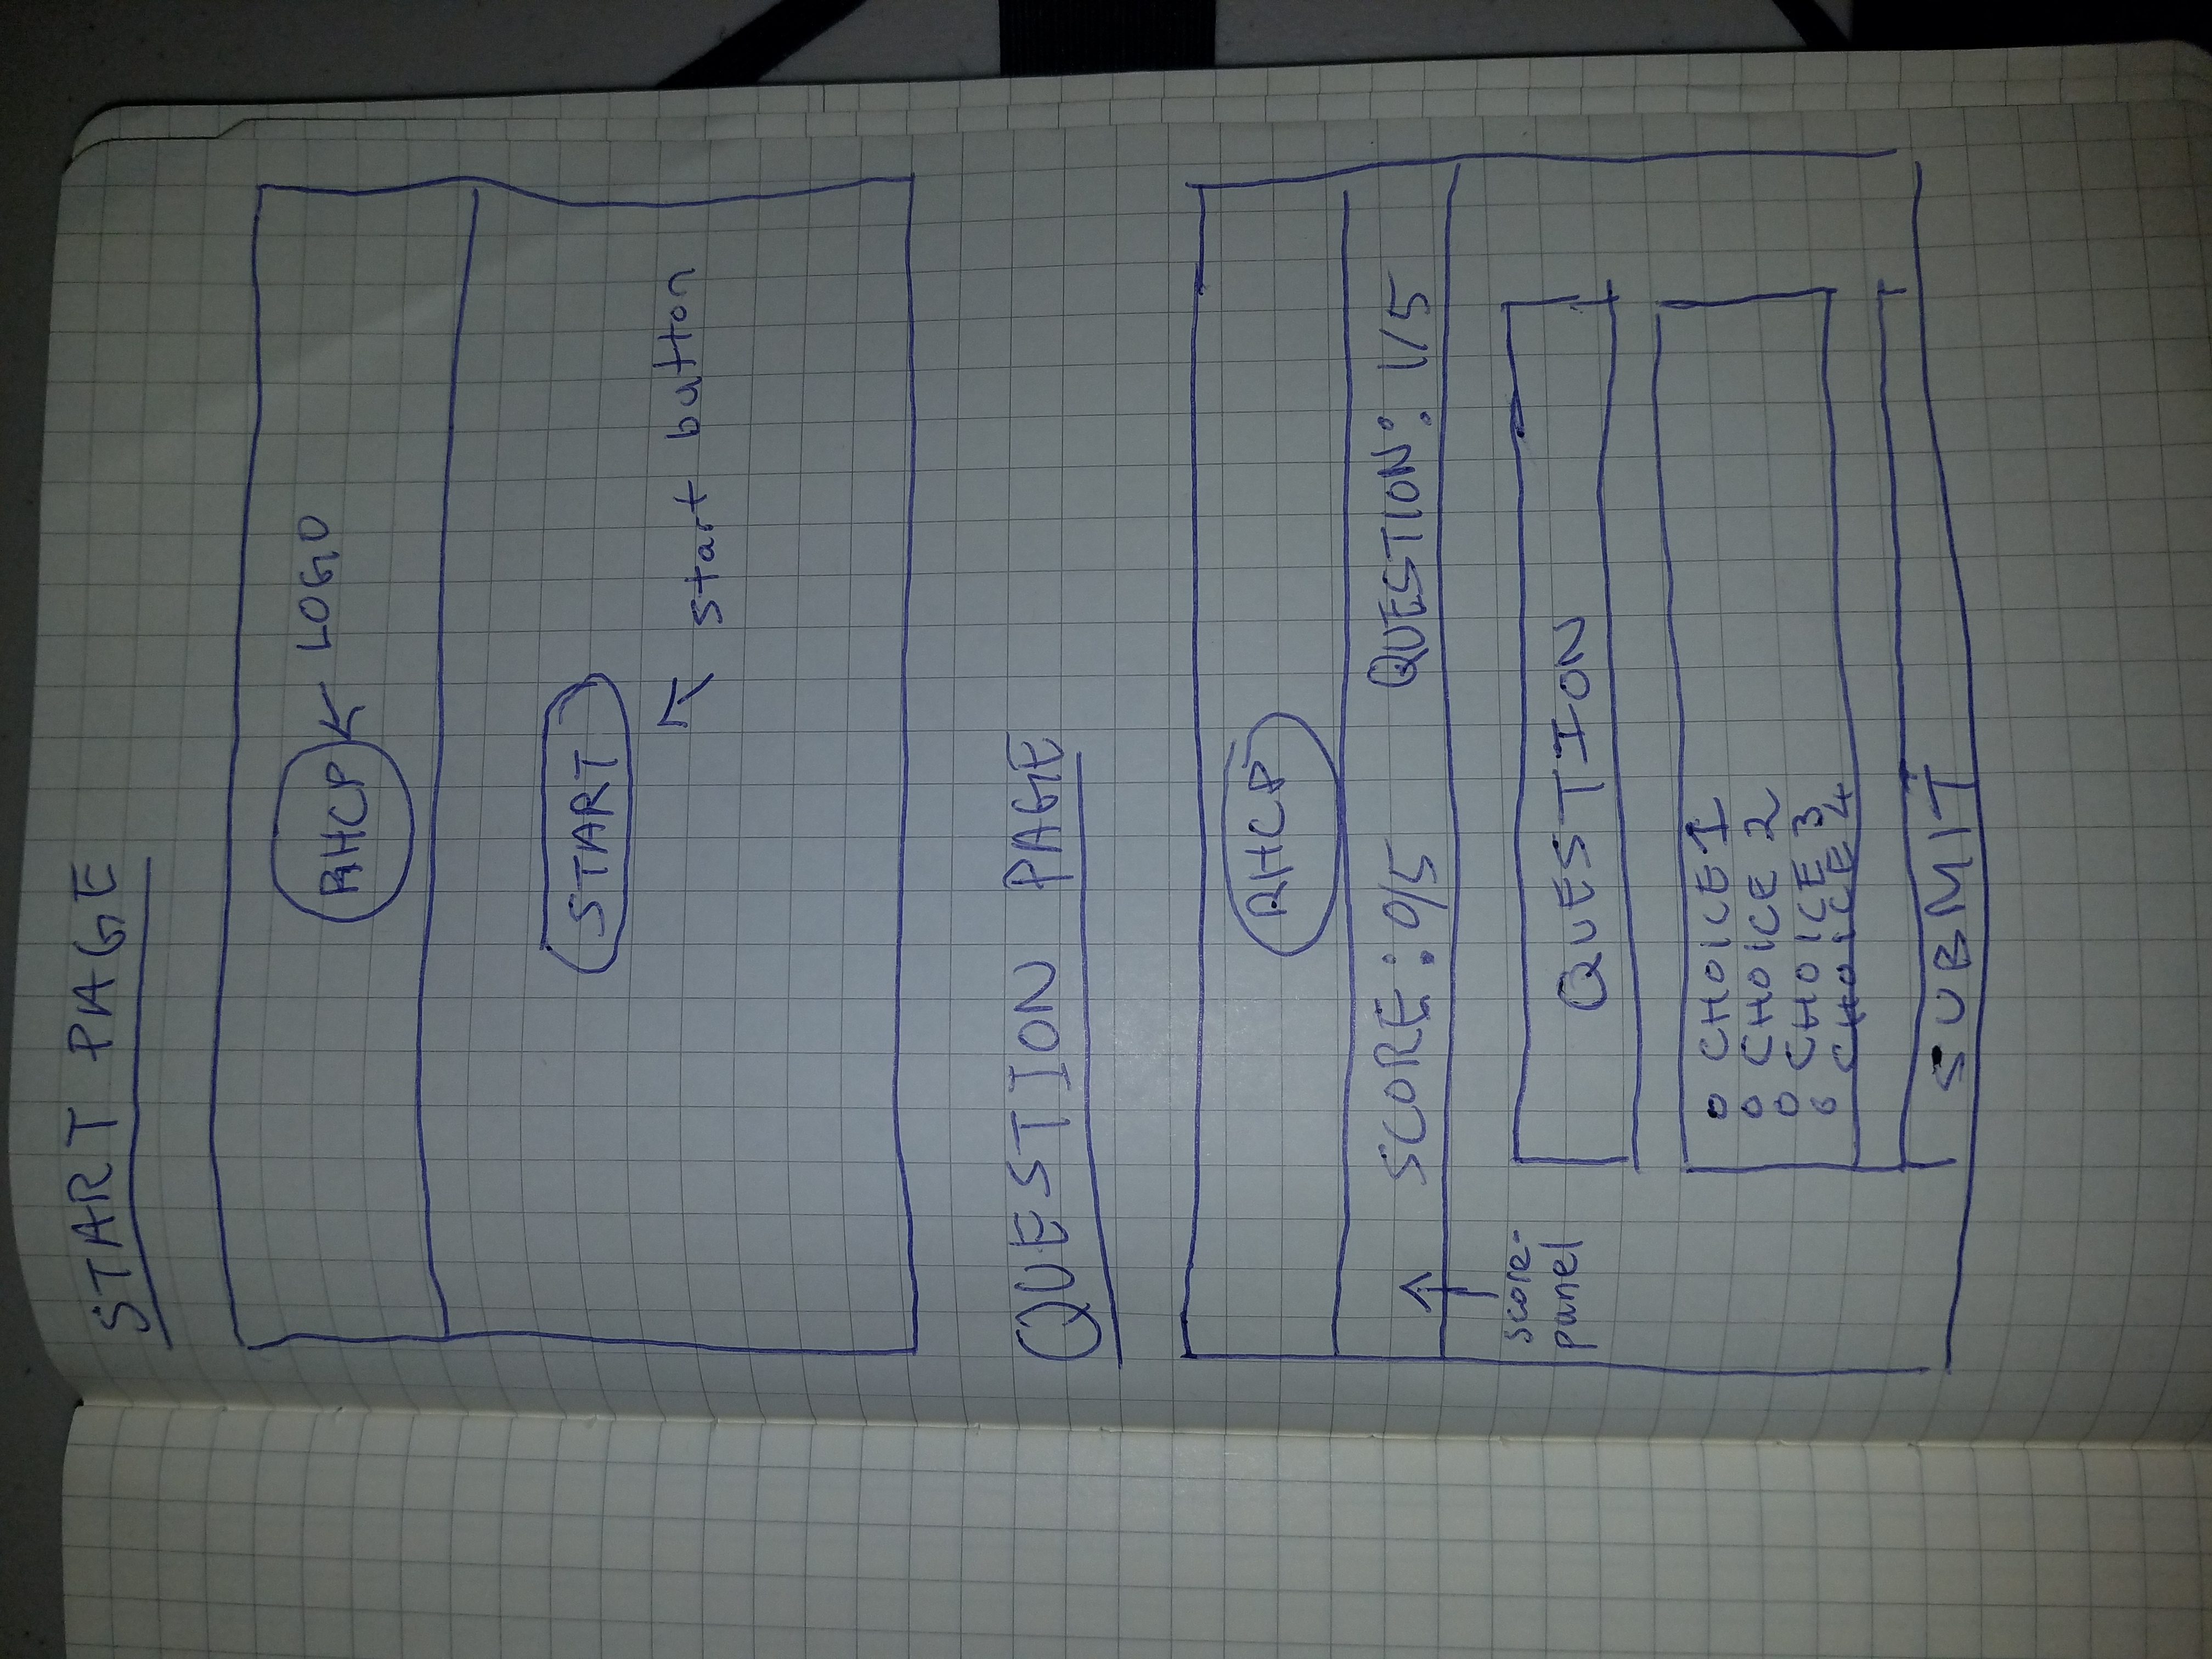 START PAGE
RHCP LOGO
START
start button
QUESTION PAGE
RHCP
SCORE: 0/5 QUESTION: 1/5
score-
panel
QUESTION
CHOICE 1
CHOICE 2
CHOICE 3
CHOICE 4
SUBMIT